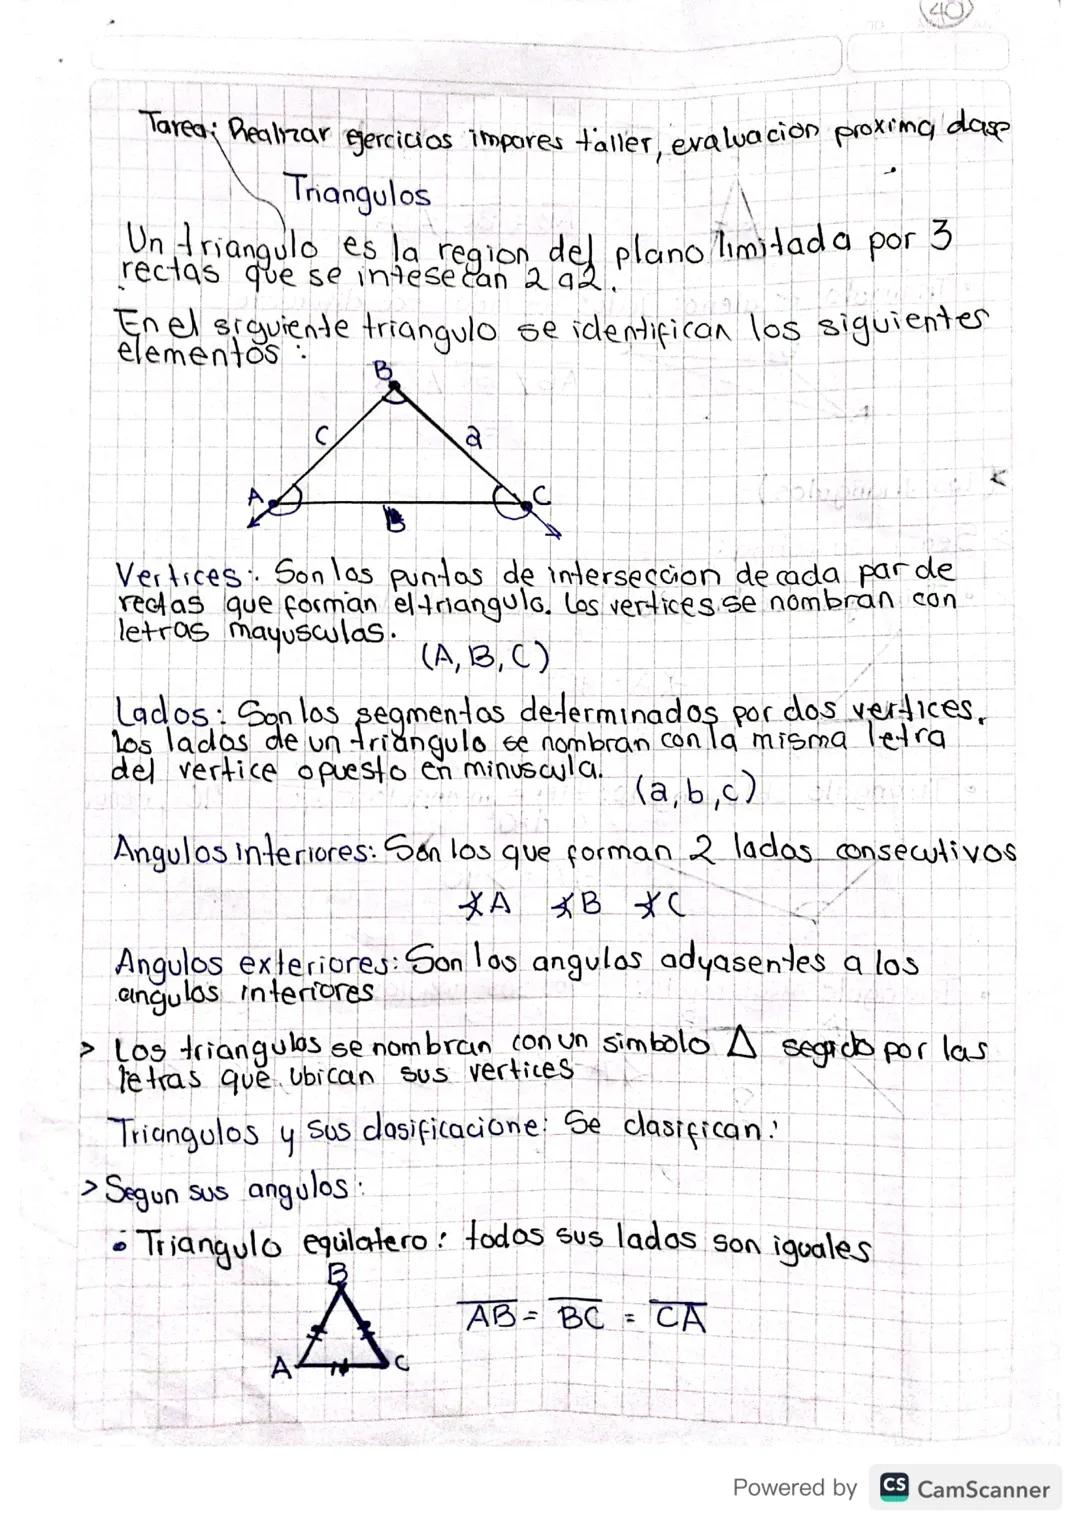 40
Tarea: Realizar ejercicios impares taller, evaluacion proxima clase
Triangulos
Un triangulo es la region del plano limitada por 3
rectas que se intesecan 2 a 2.
En el siguiente triangulo se identifican los siguientes
elementos :
B
c a
A C
B
Vertices: Son los puntos de interseccion de cada par de
rectas que forman el triangulo. Los vertices se nombran con
letras mayusculas.
(A, B, C)
Lados: Son los segmentos determinados por dos vertices.
Los lados de un triangulo se nombran con la misma letra
del vertice opuesto en minuscula.
(a, b, c)
Angulos interiores: Son los que forman 2 lados consecutivos
∡A ∡B ∡C
Angulos exteriores: Son los angulos adyasentes a los
angulos interiores
> Los triangulos se nombran con un simbolo Δ segido por las
letras que ubican sus vertices
Triangulos y sus clasificacione: Se clasifican:
> Segun sus angulos:
• Triangulo equilatero: todos sus lados son iguales
B
AB = BC = CA
A C
Powered by CS CamScanner